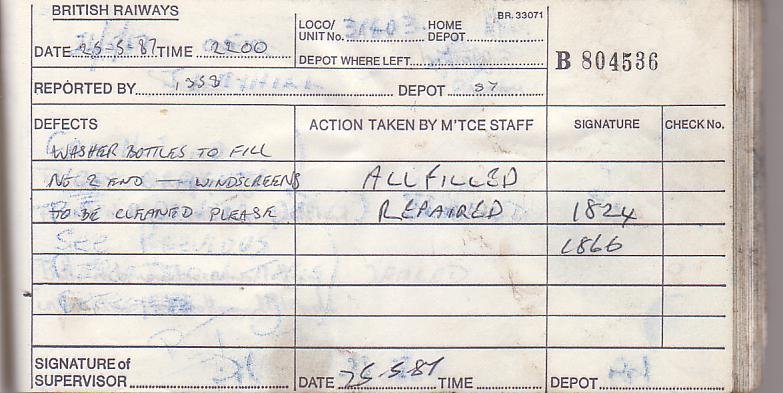 BRITISH RAIWAYS
BR. 33071
LOCO/ UNIT No. HOME DEPOT
DATE 25-5-87 TIME 2200
DEPOT WHERE LEFT
B 804536
REPORTED BY 1358 DEPOT 87
DEFECTS ACTION TAKEN BY M'TCE STAFF SIGNATURE CHECK No.
WASHER BOTTLES TO FILL
No 2 END — WINDSCREENS ALL FILLED
TO BE CLEANED PLEASE REPAIRED 1824
See Previous 1866
SIGNATURE of SUPERVISOR DATE 25-5-87 TIME DEPOT